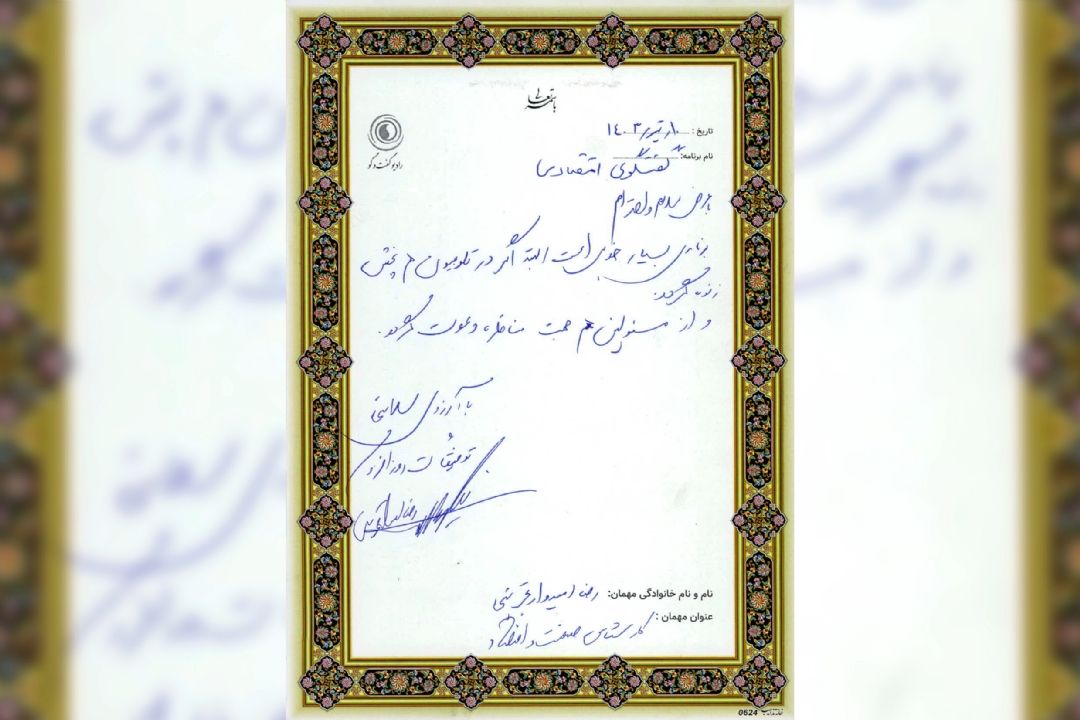 باسمه تعالی
رادیو گفت و گو
تاریخ: ۱۰ تیر ۱۴۰۳
نام برنامه: گفتگوی اقتصادی
با عرض سلام و احترام
برنامه‌ی بسیار خوبی است البته اگر در تلویزیون هم پخش
زنده گردد.
و از مسئولین هم جهت مناظره دعوت گردد.
با آرزوی سلامتی
توفیقات روزافزون
نام و نام خانوادگی مهمان: رضا امیدوار تجریشی
عنوان مهمان: کارشناس صنعت و اقتصاد
0624